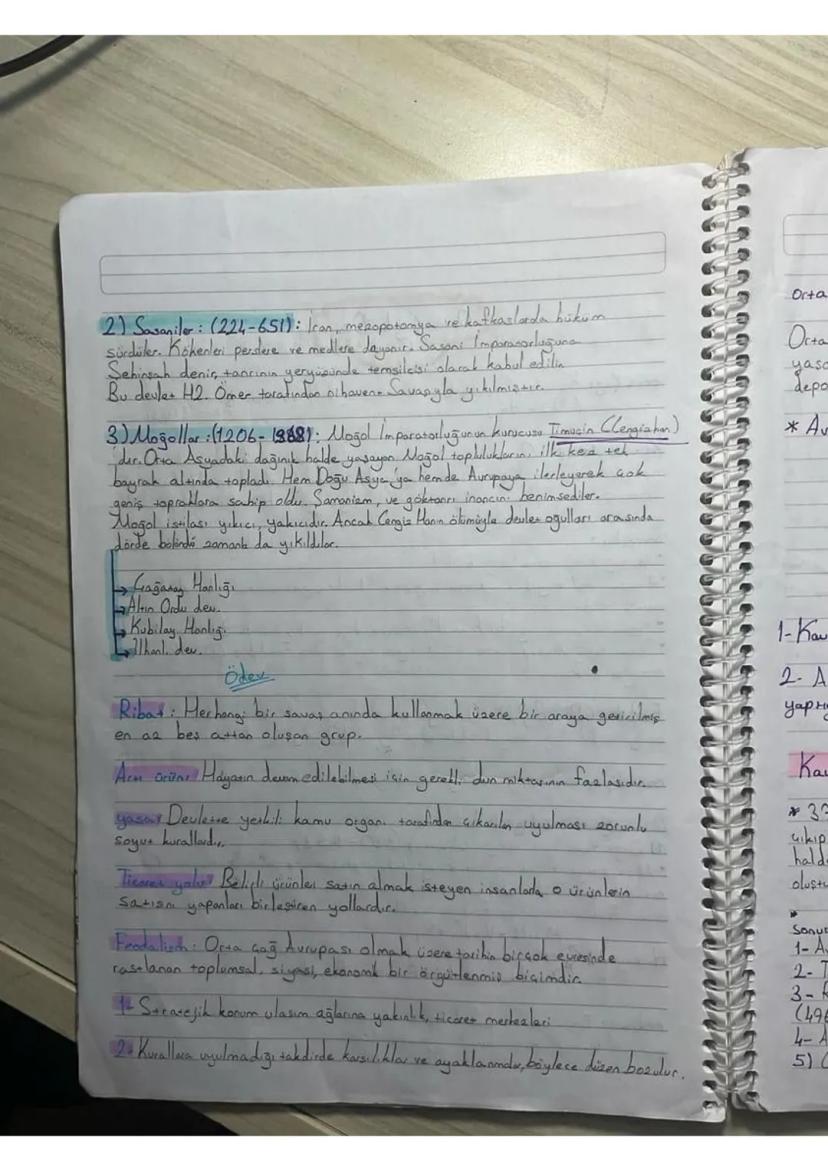 2) Sasaniler: (224-651): İran, mezopotomya ve kafkaslarda hüküm
sürdüler. Kökenleri perslere ve medlere dayanır. Sasani İmparatorluğuna
Şehinşah denir, tanrının yeryüzünde temsilcisi olarak kabul edilir.
Bu devlet HZ. Ömer tarafından nihavent Savaşıyla yıkılmıştır.
3) Moğollar: (1206-): Moğol İmparatorluğunun kurucusu Timuçin (Cengizhan)
'dır. Orta Asyadaki dağınık halde yaşayan Moğol topluluklarını ilk kez tek
bayrak altında topladı. Hem Doğu Asya'ya hemde Avrupaya ilerleyerek çok
geniş topraklara sahip oldu. Şamanizm, ve göktanrı inancını benimsediler.
Moğol istilası yıkıcı, yakıcıdır. Ancak Cengiz Hanın ölümüyle devlet oğulları arasında
dörde bölündü zamanla da yıkıldılar.
→ Çağatay Hanlığı
→ Altın Ordu dev.
→ Kubilay Hanlığı
→ İlhanlı dev.
Ödev
Ribat: Herhangi bir savaş anında kullanmak üzere bir araya getirilmiş
en az beş attan oluşan grup.
Artı ürün: Hayatın devam edilebilmesi için gerekli miktarının fazlasıdır.
yasa: Devlette yetkili kamu organı tarafından çıkarılan uyulması zorunlu
soyut kurallardır.
Ticaret yolu: Belirli ürünler satın almak isteyen insanlarla o ürünlerin
satışını yapanları birleştiren yollardır.
Feodalizm: Orta Çağ Avrupası olmak üzere tarihin birçok evresinde
rastlanan toplumsal, siyasi, ekonomik bir örgütlenmiş biçimdir.
1- Stratejik konum ulaşım ağlarına yakınlık, ticaret merkezleri
2- Kurallara uyulmadığı takdirde karşılıklar ve ayaklanmalar, böylece düzen bozulur.
Orta
Orta
yaşa
depo
* Av
1- Kav
2- A
yaptı
Kav
* 33
çıkıp
halde
oluştu
*
Sonuç
1- A
2- T
3-
4- A
5)